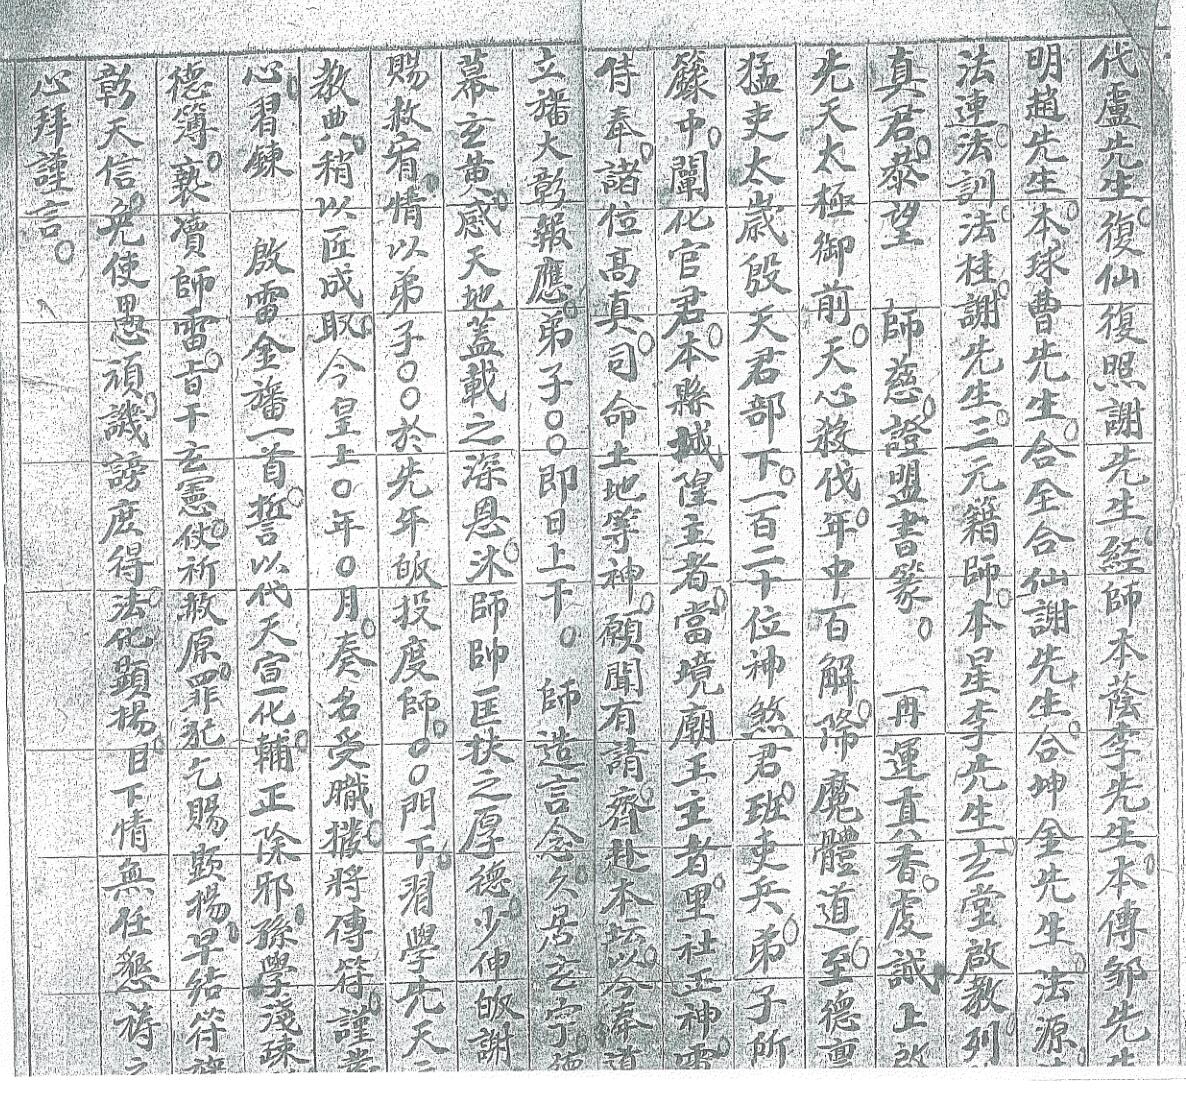 代盧先生。復仙復照謝先生。經師本蔭李先生。本傳鄒先生
明趙先生。本球曹先生。合全合仙謝先生。合坤金先生。法源
法連。法訓。法桂謝先生。三元籍師。本星李先生。玄堂啟教列
真君。恭望　師慈。證盟書篆。　一再運真香。虔誠上啟
先天太極御前。天心殺伐年。中百解降魔體道。至德禀
猛吏太歲殷天君部下。一百二十位神煞君。班吏兵。弟子所
籙中。闡化官君。本縣城隍主者。當境廟王主者。里社正神。雷
侍奉。諸位高真。司命土地等神。願聞有請。齊赴本坛。以今奉道
立旛大彰報應。弟子〇〇即日上干。　師造言念。久居玄宁。德
幕玄黄。感天地蓋載之深恩。沐師帥匡扶之厚德。少伸皈謝
賜赦宥。情以弟子〇〇於先年皈投度師。〇〇門下。習學先天
教典。稍以匠成。叹今皇上〇年〇月。奏名受職。撥將傳符。謹
心習鍊　啟雷金旛一首。誓以代天宣化。輔正除邪。孫學淺疎
德簿。褻瀆師雷。旨干玄憲。伏祈赦原。罪犯乞賜顕揚。早結符
彰天信。免使愚頑譏謗庶得。法化顯揚。日下情無任懇禱之
心拜謹言。